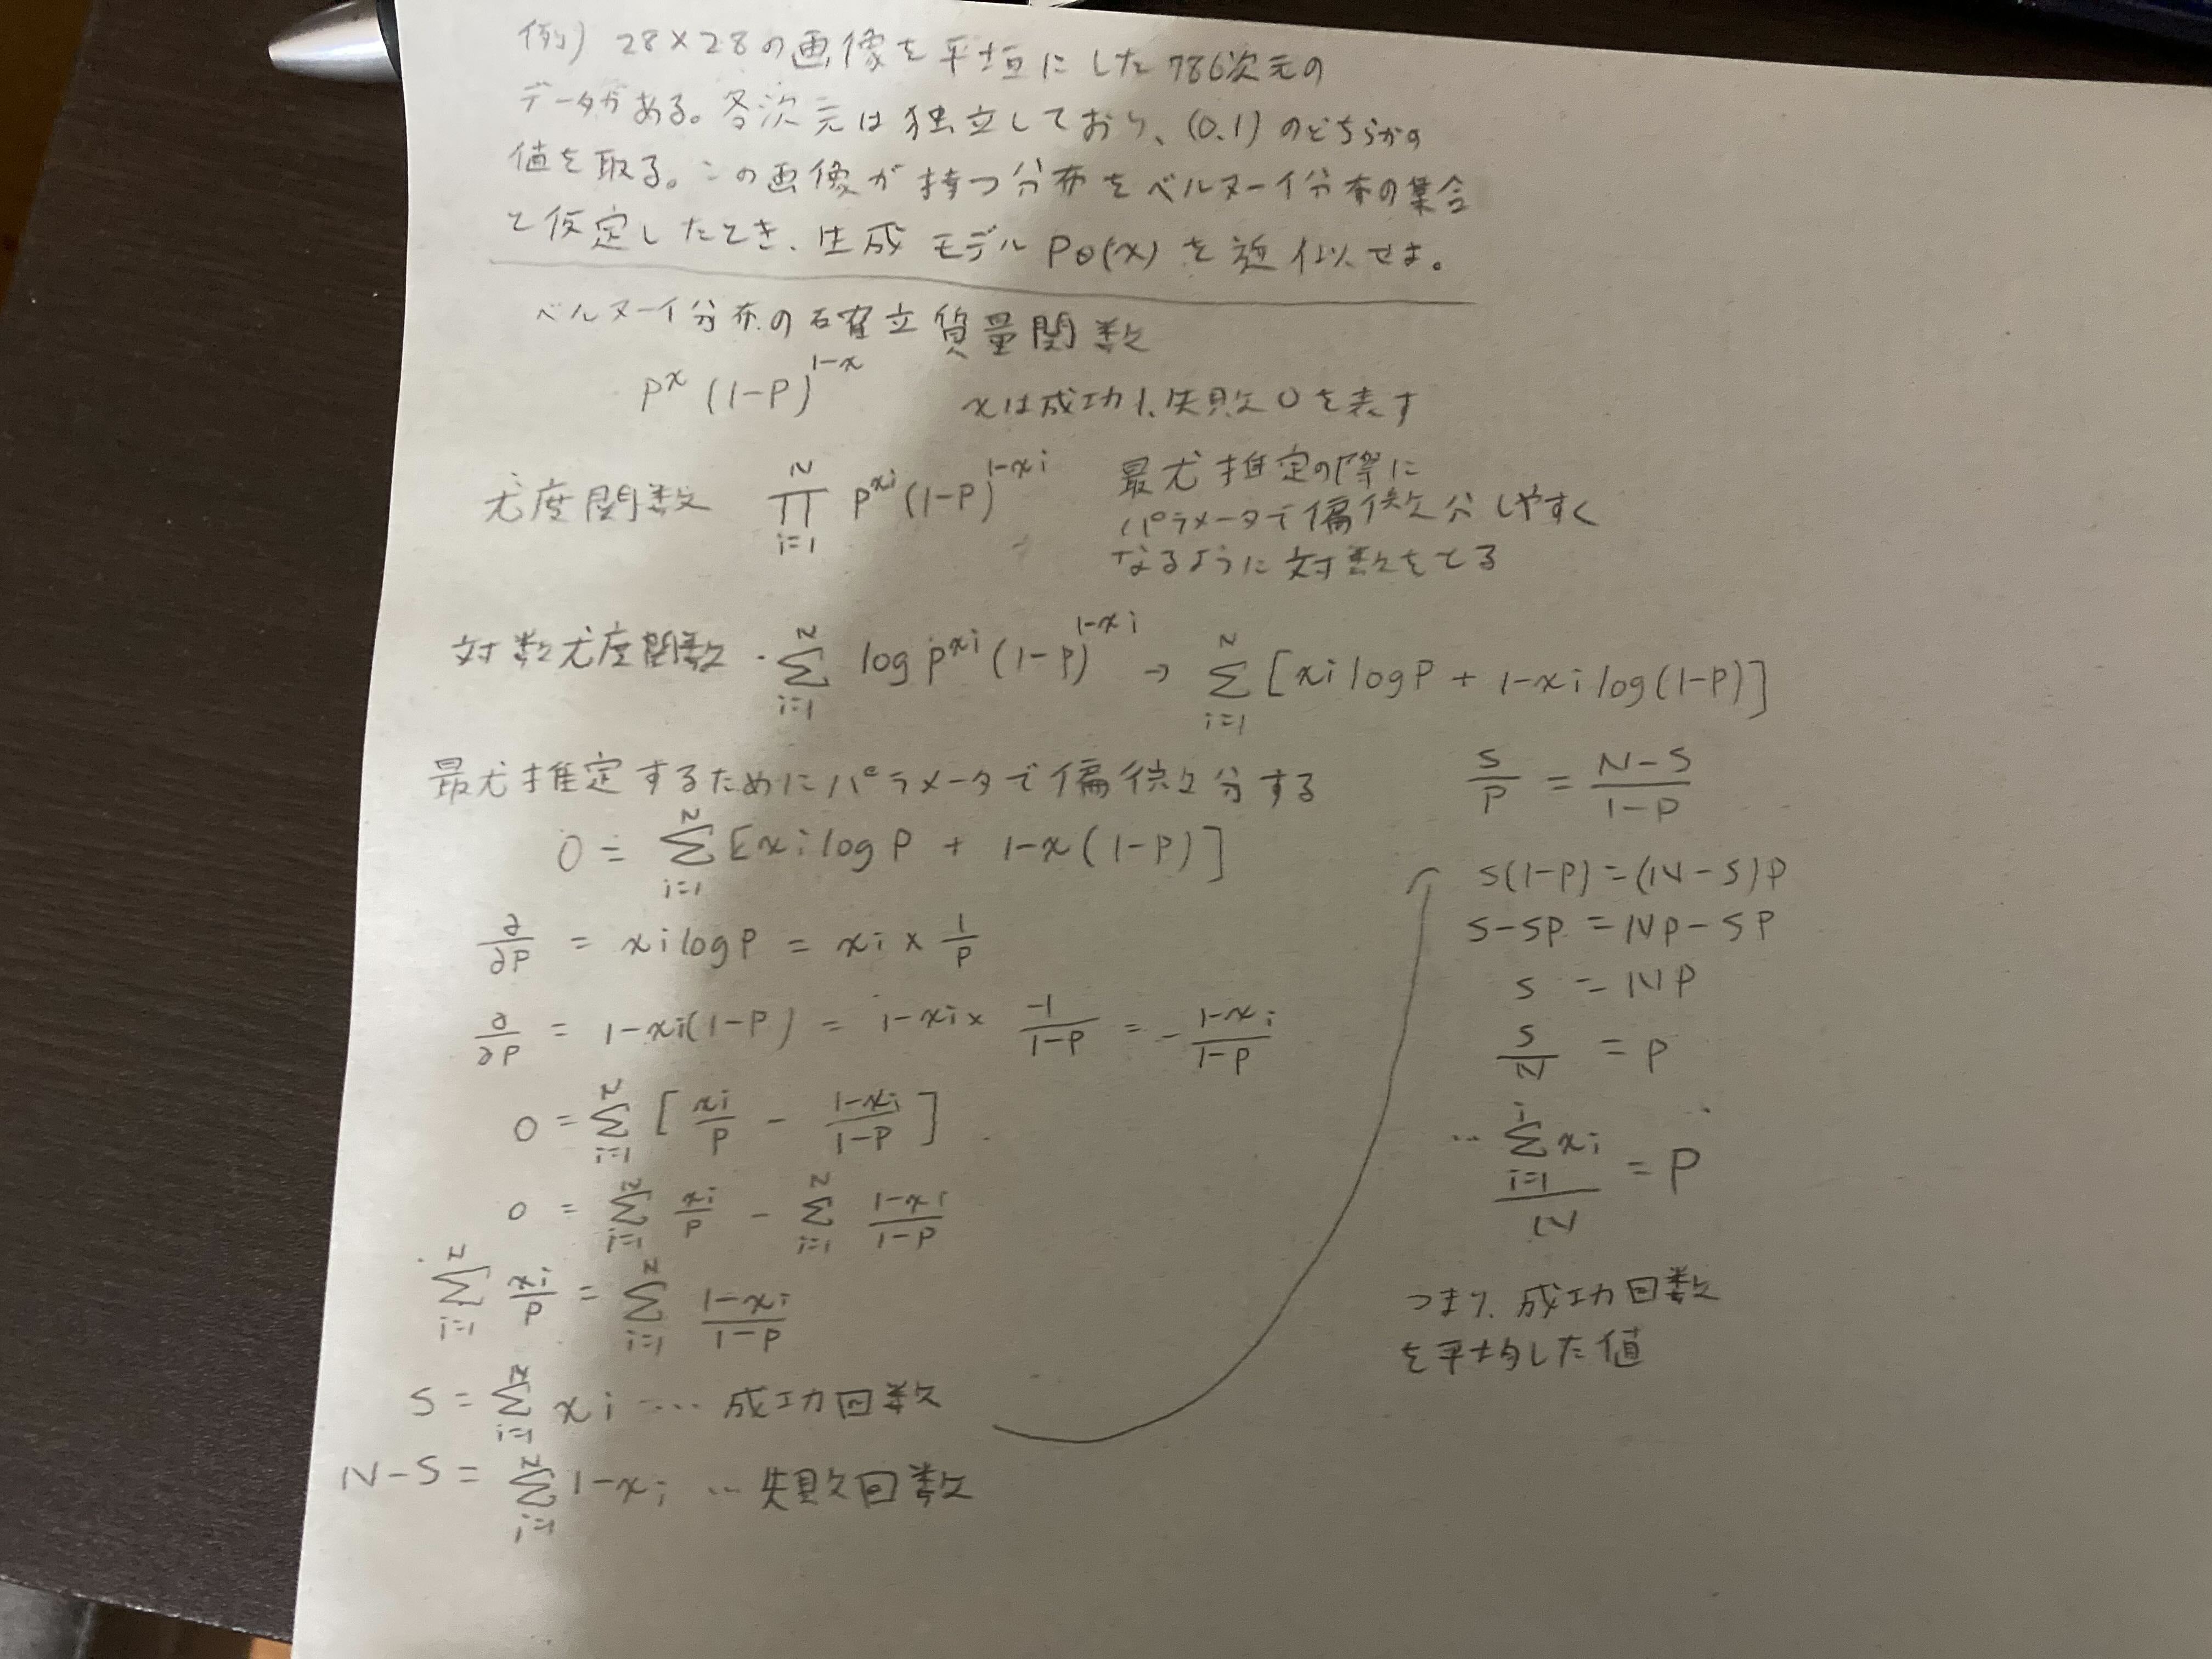 例) 28×28の画像を平坦にした786次元の
データがある。各次元は独立しており、(0.1)のどちらかの
値を取る。この画像が持つ分布をベルヌーイ分布の集合
と仮定したとき、生成モデルPθ(x)を近似せよ。
ベルヌーイ分布の確立質量関数
P^x (1-P)^{1-x}
xは成功1、失敗0を表す
尤度関数 ∏_{i=1}^{N} P^{xi} (1-P)^{1-xi}
最尤推定の際に
パラメータで偏微分しやすく
なるように対数をとる
対数尤度関数・∑_{i=1}^{N} log P^{xi} (1-P)^{1-xi} → ∑_{i=1}^{N} [xi log P + 1-xi log(1-P)]
最尤推定するためにパラメータで偏微分する
0 = ∑_{i=1}^{N} [xi log P + 1-x(1-P)]
∂/∂P = xi log P = xi × 1/P
∂/∂P = 1-xi(1-P) = 1-xi × -1/(1-P) = - (1-xi)/(1-P)
0 = ∑_{i=1}^{N} [xi/P - (1-xi)/(1-P)]
0 = ∑_{i=1}^{N} xi/P - ∑_{i=1}^{N} (1-xi)/(1-P)
∑_{i=1}^{N} xi/P = ∑_{i=1}^{N} (1-xi)/(1-P)
S = ∑_{i=1}^{N} xi … 成功回数
N-S = ∑_{i=1}^{N} 1-xi … 失敗回数
S/P = (N-S)/(1-P)
S(1-P) = (N-S)P
S-SP = NP-SP
S = NP
S/N = P
… (∑_{i=1}^{i} xi)/N = P
つまり、成功回数
を平均した値